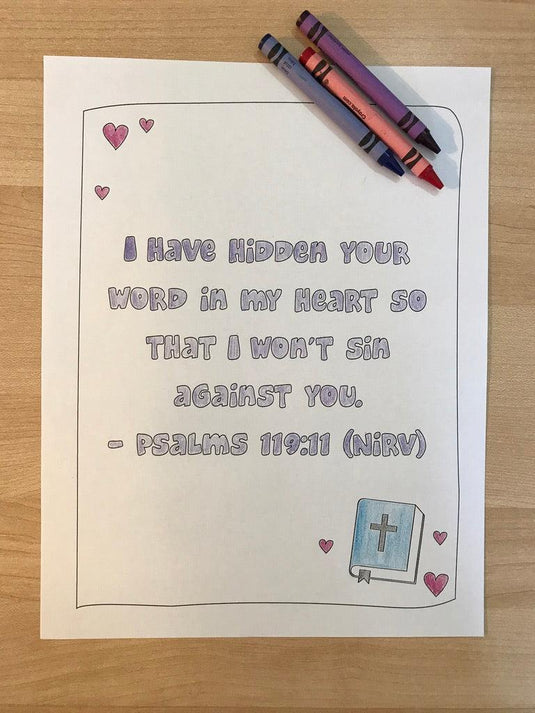 I Have HiDDen YOUR
WORD in my HeaRT SO
THaT I WON'T Sin
aGainST YOU.
- PSaLmS 119:11 (NiRV)